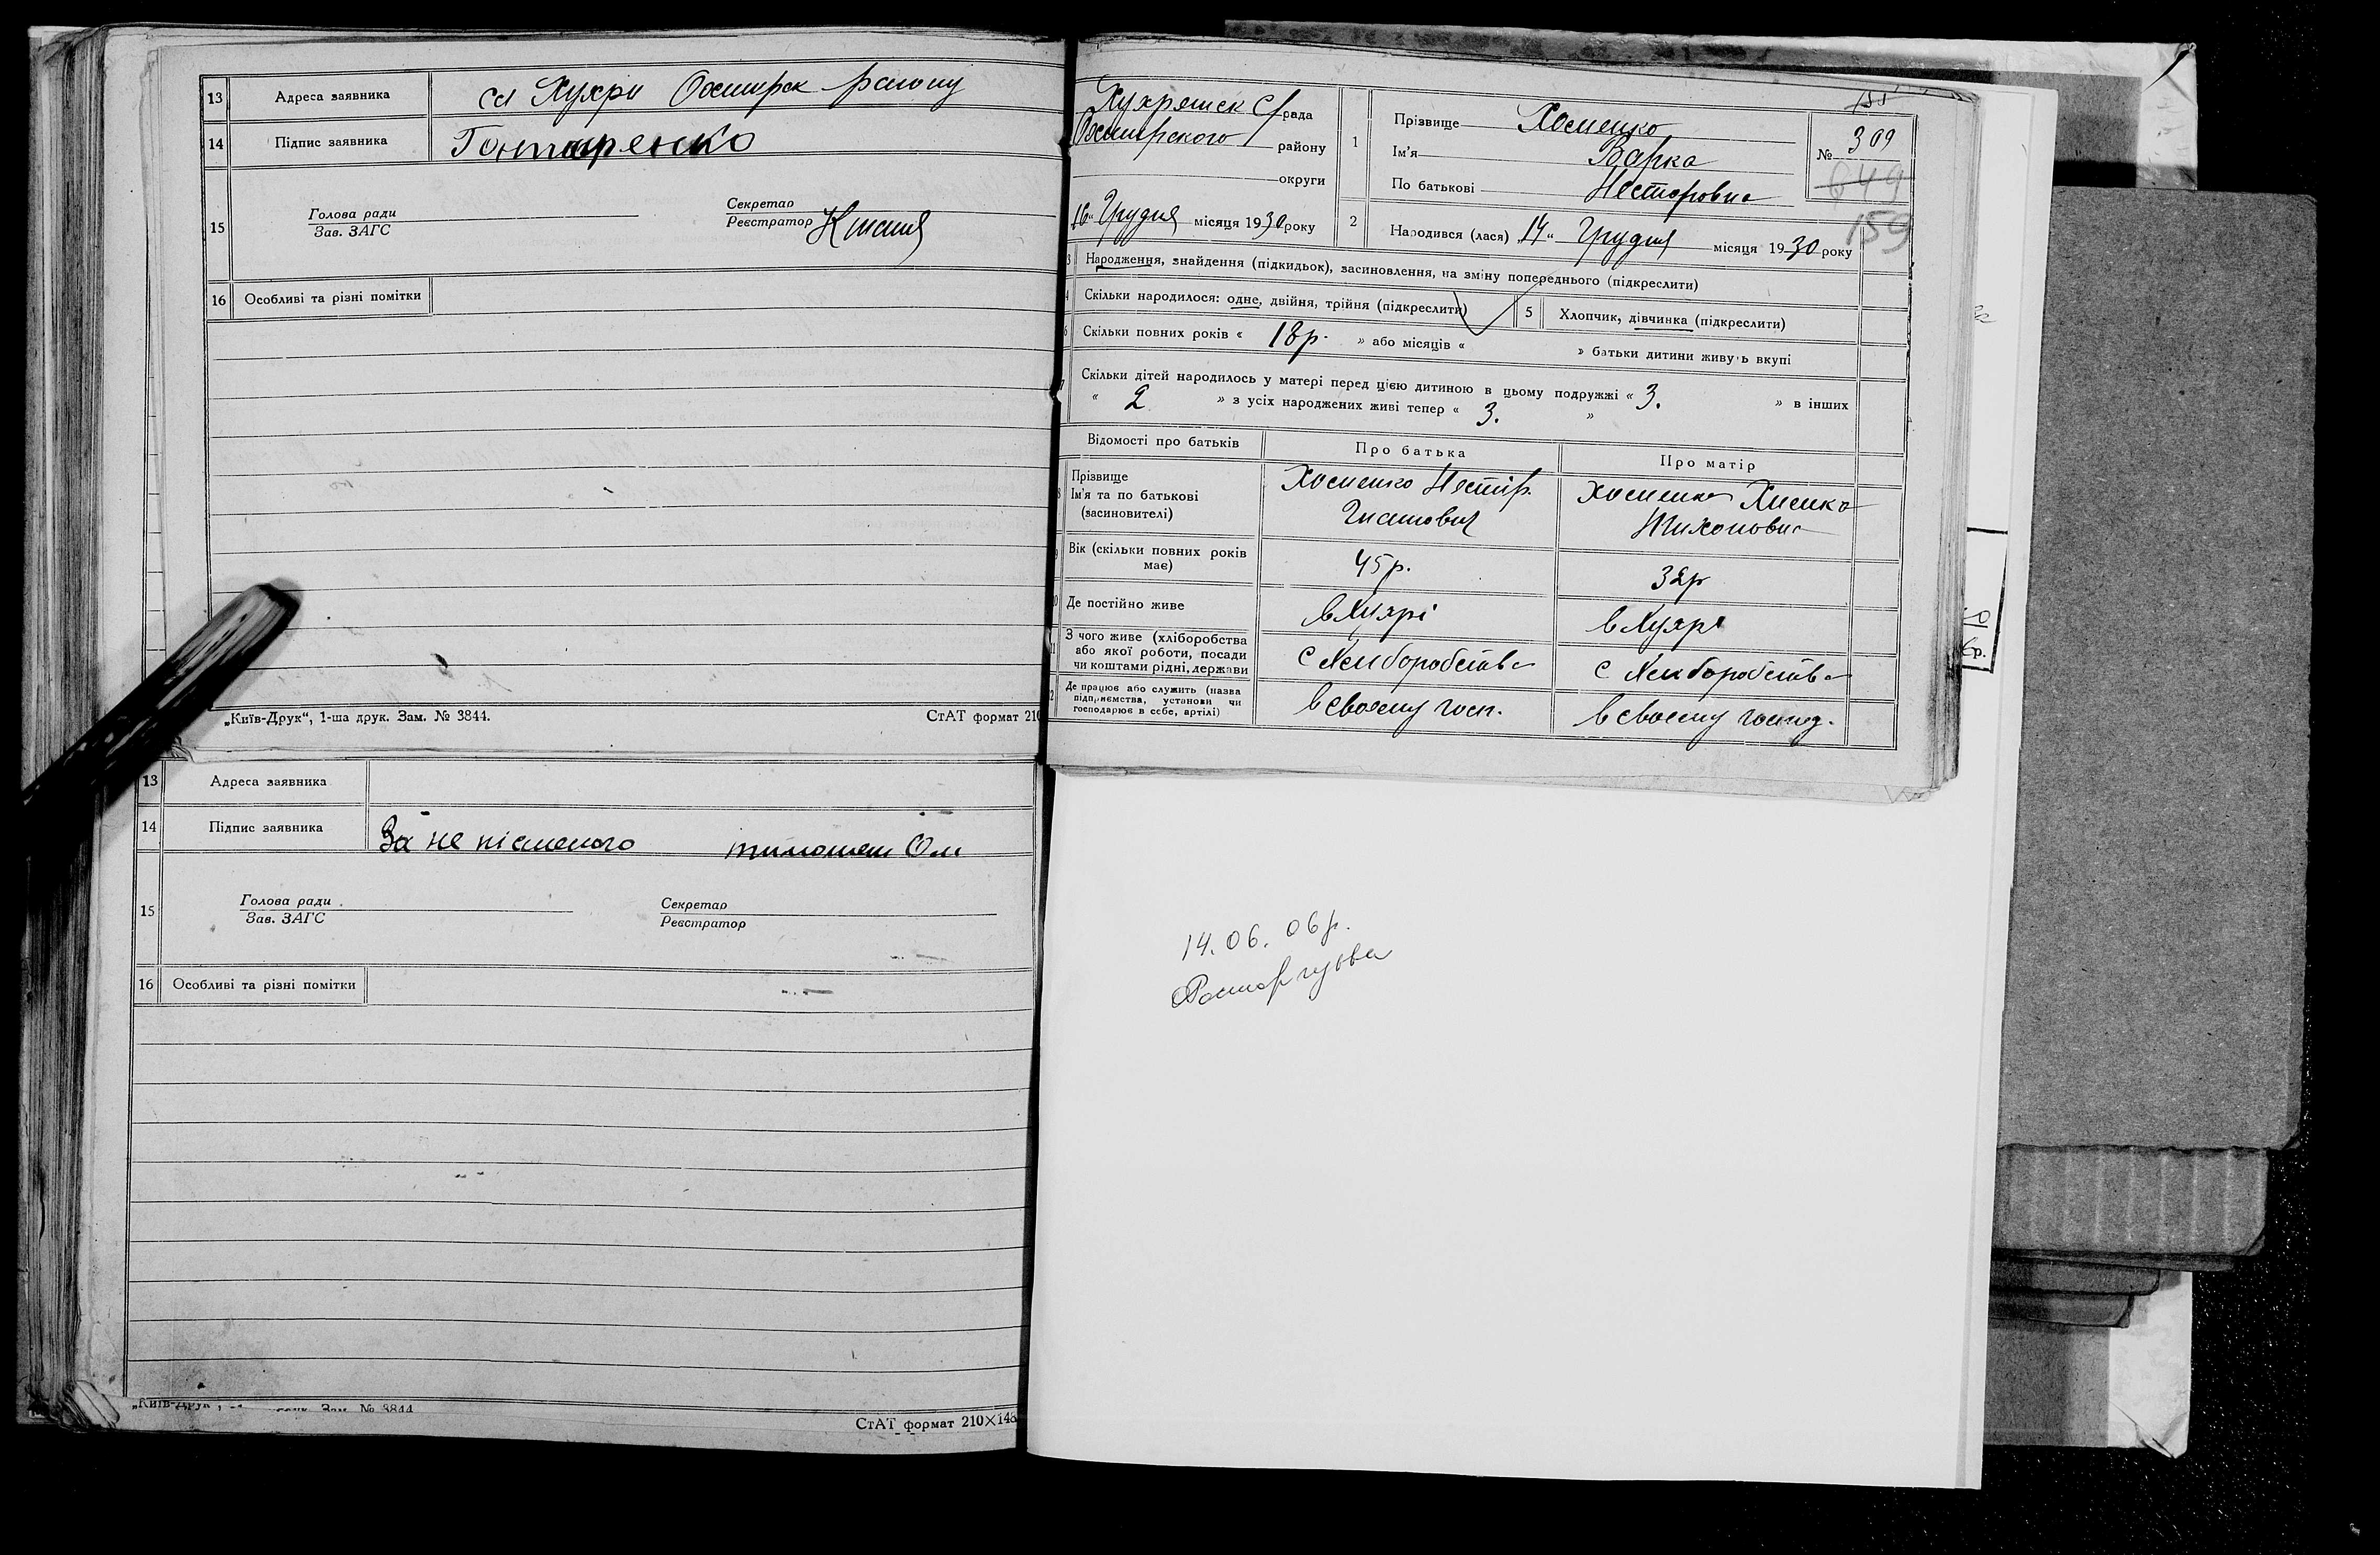 13 Адреса заявника сл Хухри Охтирск району
14 Підпис заявника Гонтаренко
15 Голова ради
Зав. ЗАГС
Секретар
Реєстратор
16 Особливі та різні помітки
„Київ-Друк“, 1-ша друк. Зам. № 3844.
СтАТ формат 210
13 Адреса заявника
14 Підпис заявника За не писменого
15 Голова ради
Зав. ЗАГС
Секретар
Реєстратор
16 Особливі та різні помітки
Зам. № 3844
СтАТ формат 210×148
Хухрянск С/рада
Охтирского району
округи
„16“ Грудня місяця 1930 року
1 Прізвище Хоменко
Ім'я Варка
По батькові Несторовна
№ 309
649
159
2 Народився (лася) „14“ Грудня місяця 1930 року
3 Народження, знайдення (підкидьок), засиновлення, на зміну попереднього (підкреслити)
4 Скільки народилося: одне, двійня, трійня (підкреслити)
5 Хлопчик, дівчинка (підкреслити)
6 Скільки повних років « 18р. » або місяців « » батьки дитини живуть вкупі
7 Скільки дітей народилось у матері перед цією дитиною в цьому подружжі « 3. » в інших
« 2 » з усіх народжених живі тепер « 3. »
Відомості про батьків Про батька Про матір
8 Прізвище
Ім'я та по батькові
(засиновителі)
Хоменко Нестір
Хоменко
Тихоновна
9 Вік (скільки повних років
має)
45р.
32р
10 Де постійно живе
в Хухрі
в Хухрі
11 З чого живе (хліборобства
або якої роботи, посади
чи коштами рідні, держави
с хлиборобства
с хлиборобства
12 Де працює або служить (назва
підприємства, установи чи
господарює в себе, артілі)
в своєму госп.
в своєму господ.
14.06.06р.